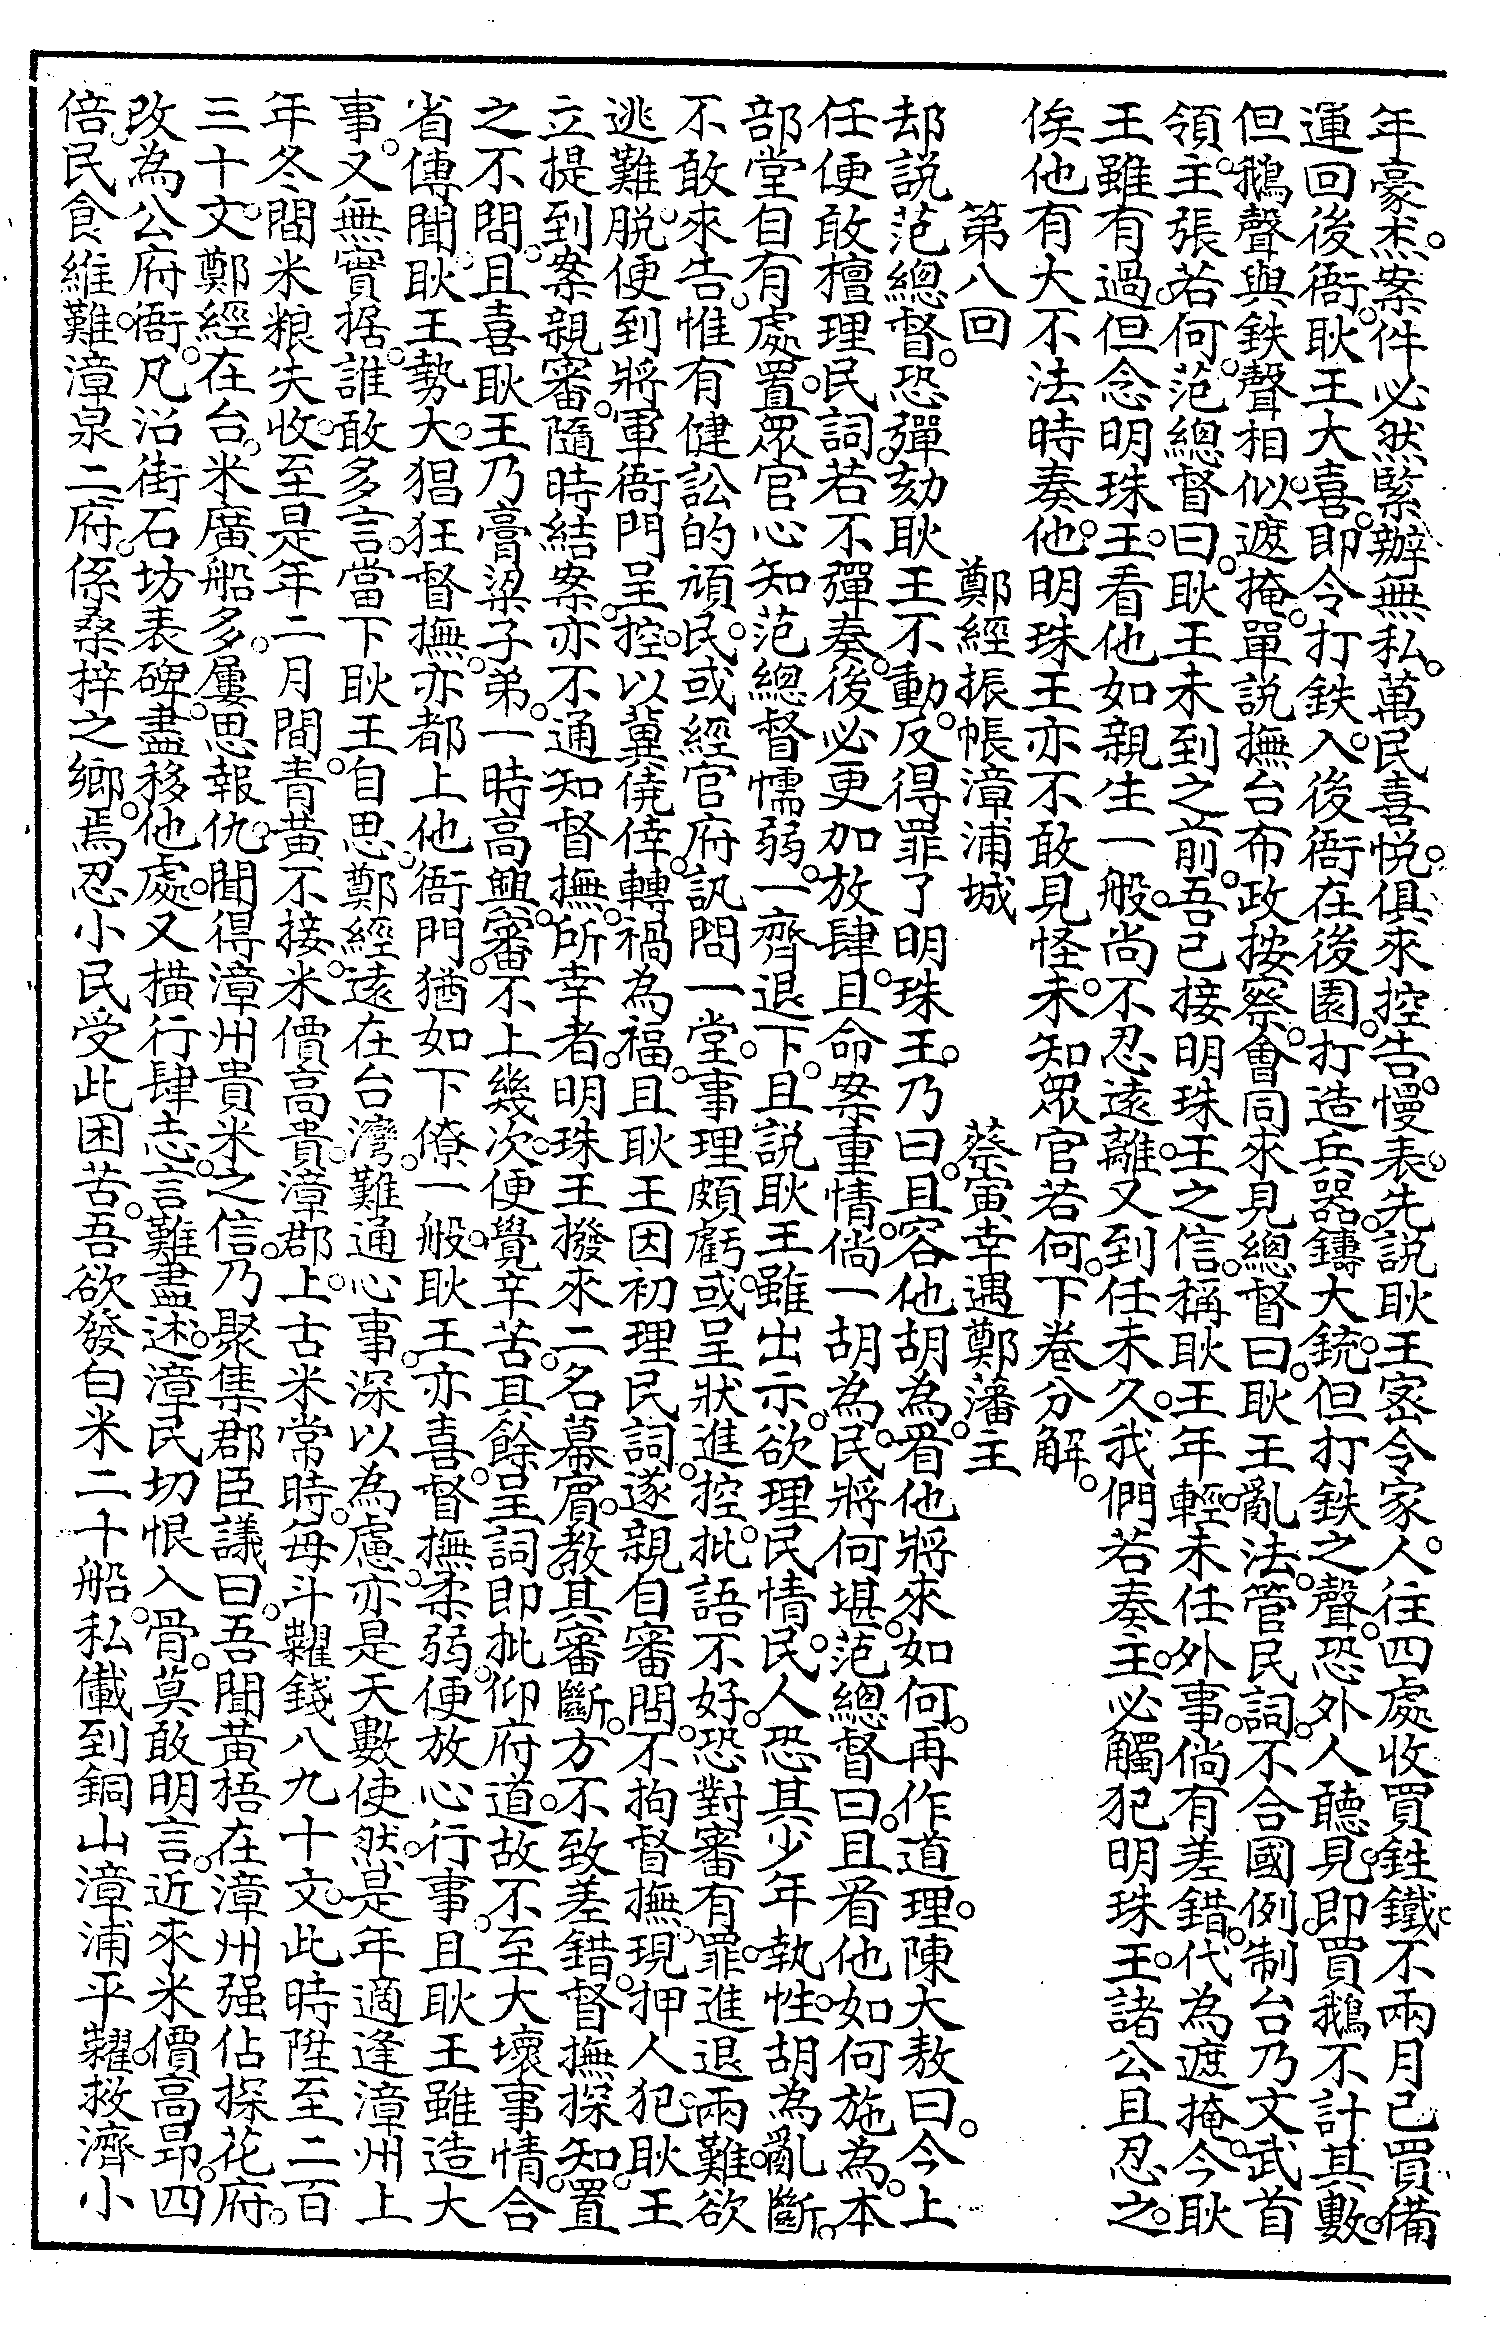 年豪杰案件必然緊辦無私萬民喜悦俱來控告慢表先説耿王密令家人往四處收買鉎鐵不兩月已買備
運回後衙耿王大喜即令打鉄入後衙在後園打造兵器鑄大銃但打鉄之聲恐外人聽見即買鵝不計其數
但鵝聲與鉄聲相似遮掩單説撫台布政按察會同來見總督曰耿王亂法管民詞不合國例制台乃文武首
領主張若何范總督曰耿王未到之前吾已接明珠王之信稱耿王年輕未任外事倘有差錯代為遮掩今耿
王雖有過但念明珠王看他如親生一般尚不忍遠離又到任未久我們若奏主必觸犯明珠王諸公且忍之
俟他有大不法時奏他明珠王亦不敢見怪未知眾官若何下卷分解
第八回　鄭經振帳漳浦城　蔡寅幸遇鄭藩主
却説范總督恐彈劾耿王不動反得罪了明珠王乃曰且容他胡為看他將來如何再作道理陳大敖曰今上
任便敢檀理民詞若不彈奏後必更加放肆且命案重情倘一胡為民將何堪范總督曰且看他如何施為本
部堂自有處置眾官心知范總督懦弱一齊退下且説耿王雖出示欲理民情民人恐其少年執性胡為亂斷
不敢來告惟有健訟的頑民或經官府訊問一堂事理頗虧或呈狀進控批語不好恐對審有罪進退兩難欲
逃難脱便到將軍衙門呈控以冀僥倖轉禍為福且耿王因初理民詞遂親自審問不拘督撫現押人犯耿王
立提到案親審隨時結案亦不通知督撫所幸者明珠王撥來二名幕賓教其審斷方不致差錯督撫探知置
之不問且喜耿王乃膏梁子弟一時高興審不上幾次便覺辛苦其餘呈詞即批仰府道故不至大壞事情合
省傳聞耿王勢大猖狂督撫亦都上他衙門猶如下僚一般耿王亦喜督撫柔弱便放心行事且耿王雖造大
事又無實据誰敢多言當下耿王自思鄭經遠在台灣難通心事深以為慮亦是天數使然是年適逢漳州上
年冬間米粮失收至是年二月間青黃不接米價高貴漳郡上古米常時每斗糶錢八九十文此時陞至二百
三十文鄭經在台米廣船多屢思報仇聞得漳州貴米之信乃聚集郡臣議曰吾聞黃梧在漳州强佔探花府
改為公府衙凡沿街石坊表碑盡移他處又橫行肆志言難盡述漳民切恨入骨莫敢明言近來米價高昂四
倍民食維難漳泉二府係桑梓之鄉焉忍小民受此困苦吾欲發白米二十船私儎到銅山漳浦平糶救濟小